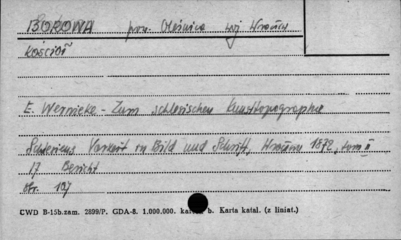 BOROWA pow. Oleśnica woj Wrocław
Kościół
E. Wernicke - Zum schlesischen Kunsttopographie
Schlesiens Vorzeit in Bild und Schrift, Wrocław 1872, tom II
17 Bericht
str. 107
CWD B-15b.zam. 2899/P. GDA-8. 1.000.000. kart. b. Karta katal. (z liniat.)